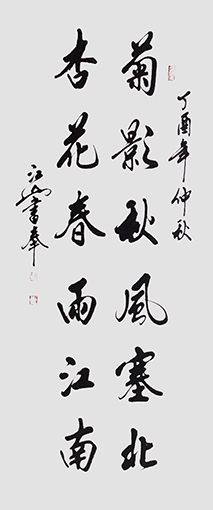 丁酉年仲秋
菊影秋風塞北
杏花春雨江南
江山書奉